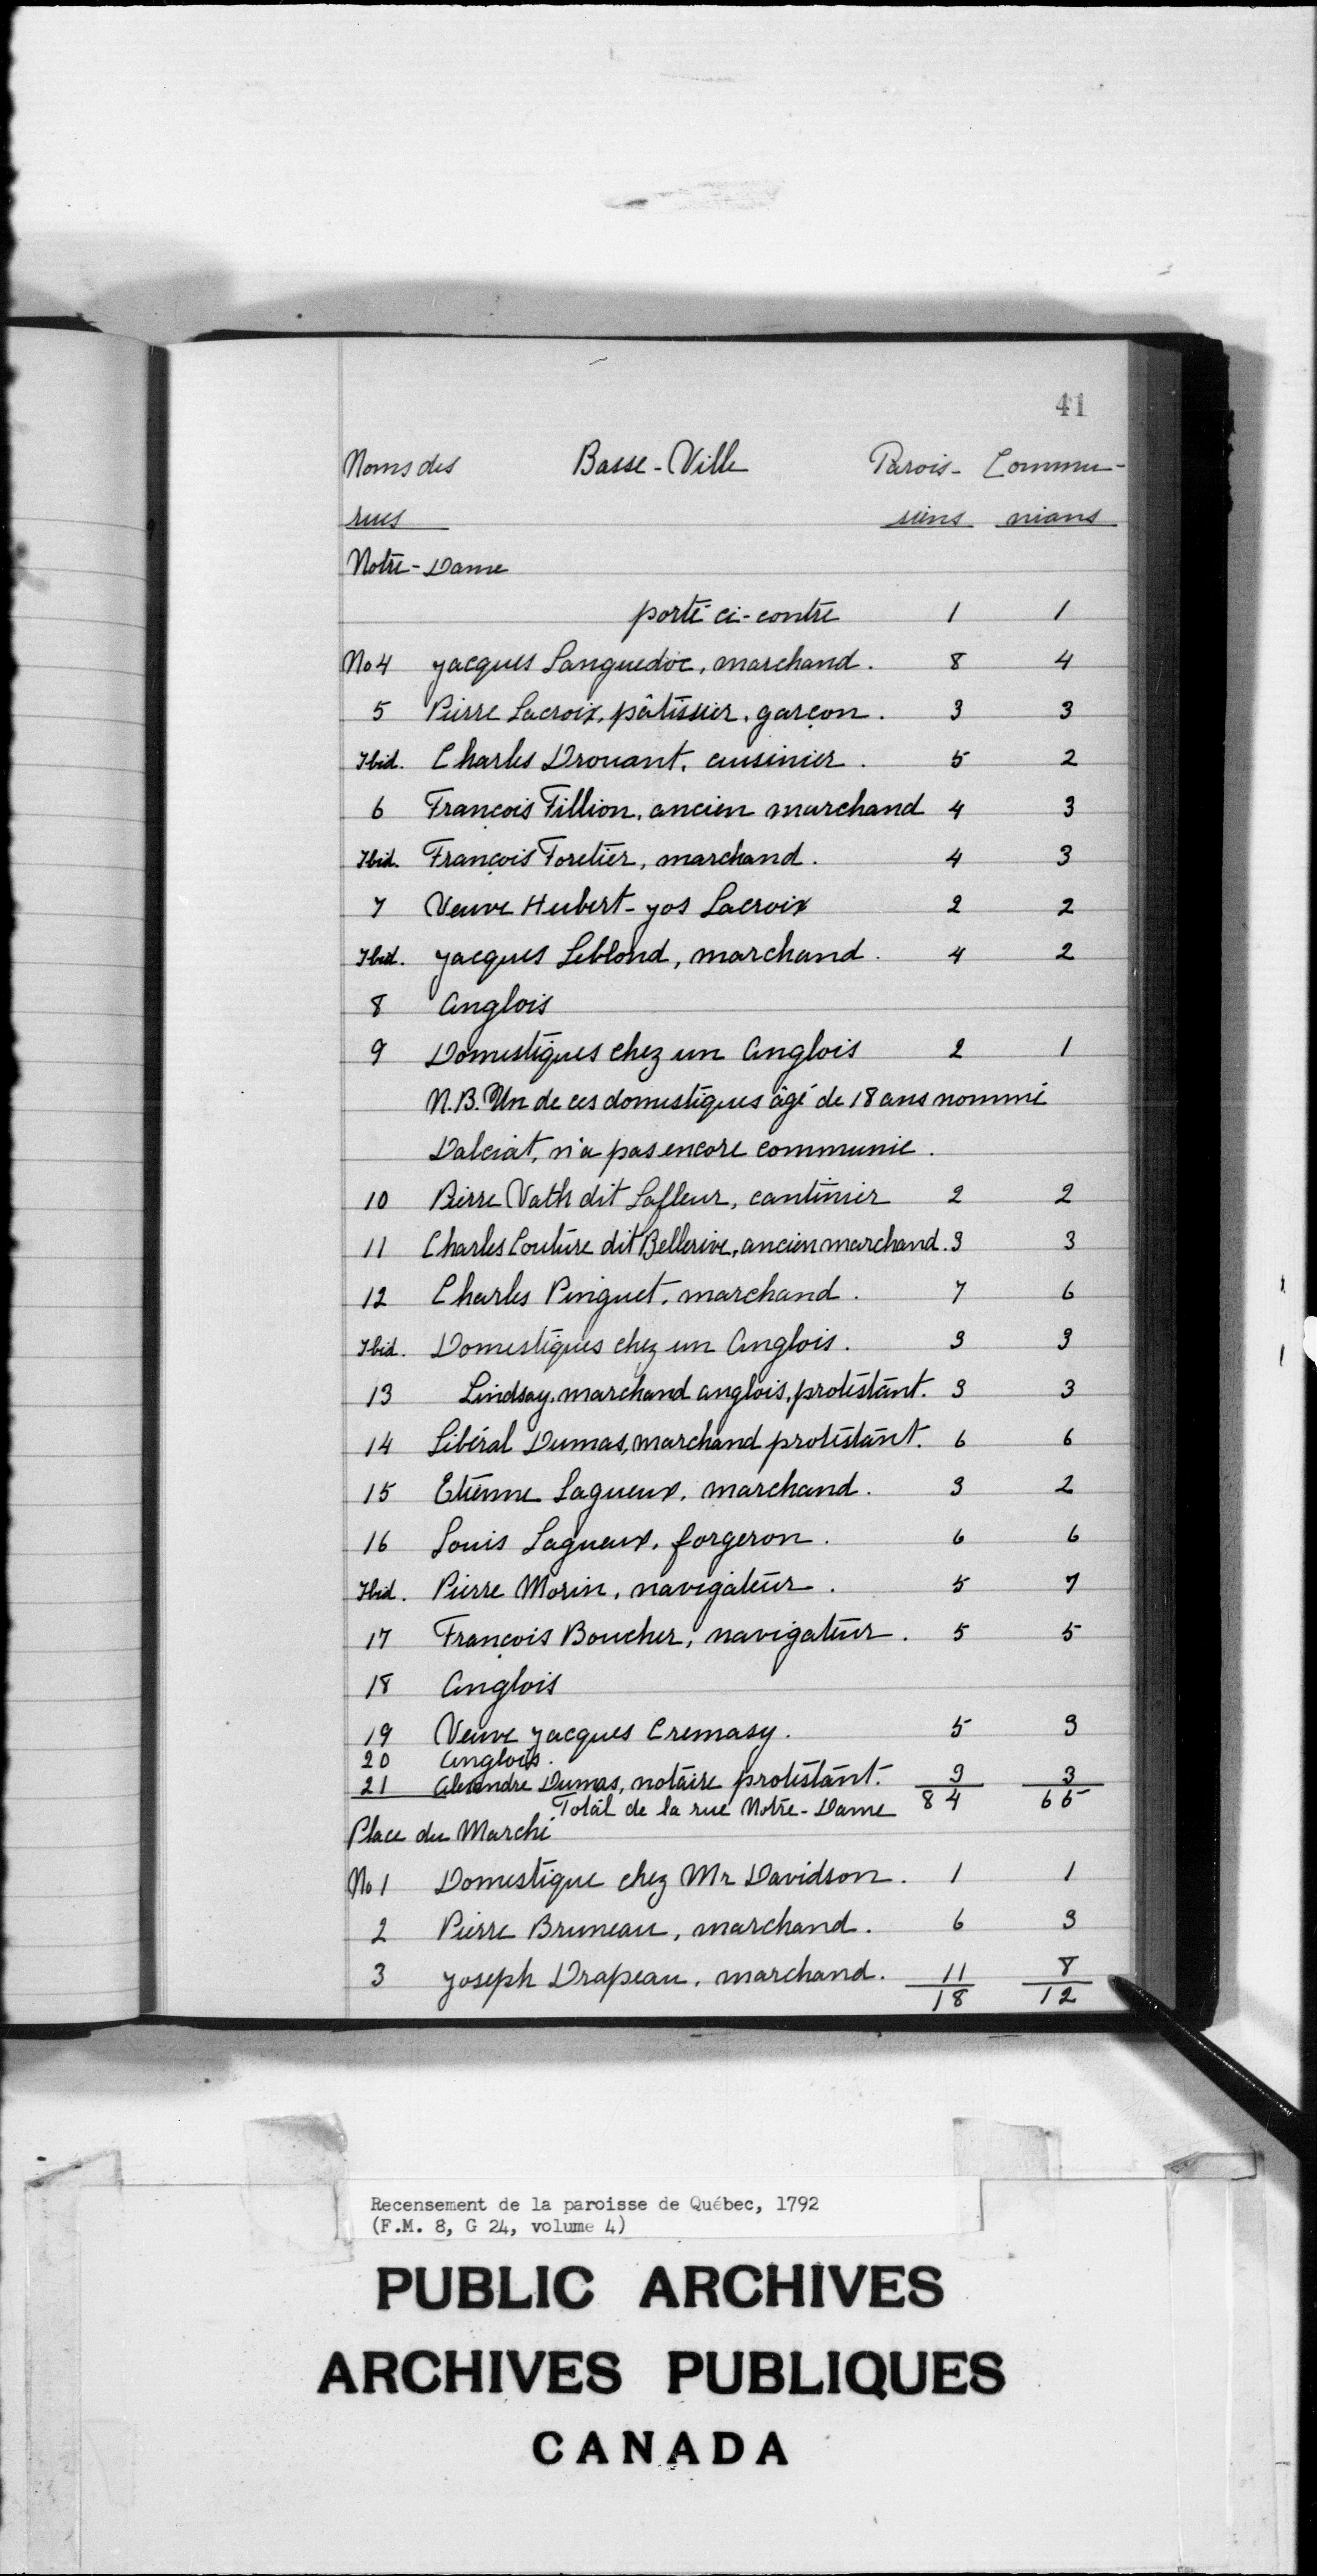 41
Noms des Basse-Ville Parois- Commu-
rues siens nians
Notre-Dame
porté ci-contre 1 1
No 4 Jacques Languedoc, marchand. 8 4
5 Pierre Lacroix, pâtissier, garçon. 3 3
Ibid. Charles Drouant, cuisinier. 5 2
6 François Fillion, ancien marchand 4 3
Ibid. François Foretier, marchand. 4 3
7 Veuve Hubert-Jos Lacroix 2 2
Ibid. Jacques Leblond, marchand. 4 2
8 Anglois
9 Domestiques chez un Anglois 2 1
N.B. Un de ces domestiques âgé de 18 ans nommé
Dalciat, n'a pas encore communié.
10 Pierre Vath dit Lafleur, cantinier 2 2
11 Charles Couture dit Bellerive, ancien marchand. 3 3
12 Charles Pinguet, marchand. 7 6
Ibid. Domestiques chez un Anglois. 3 3
13 Lindsay, marchand anglois, protestant. 3 3
14 Libéral Dumas, marchand protestant. 6 6
15 Etienne Lagueux, marchand. 3 2
16 Louis Lagueux, forgeron. 6 6
Ibid. Pierre Morin, navigateur. 5 7
17 François Boucher, navigateur. 5 5
18 Anglois
19 Veuve Jacques Cremasy. 5 3
20 Anglois.
21 Alexandre Dumas, notaire protestant. 3 3
Total de la rue Notre-Dame 84 65
Place du Marché
No 1 Domestique chez Mr Davidson. 1 1
2 Pierre Bruneau, marchand. 6 3
3 Joseph Drapeau, marchand. 11 8
18 12
Recensement de la paroisse de Québec, 1792
(F.M. 8, G 24, volume 4)
PUBLIC ARCHIVES
ARCHIVES PUBLIQUES
CANADA